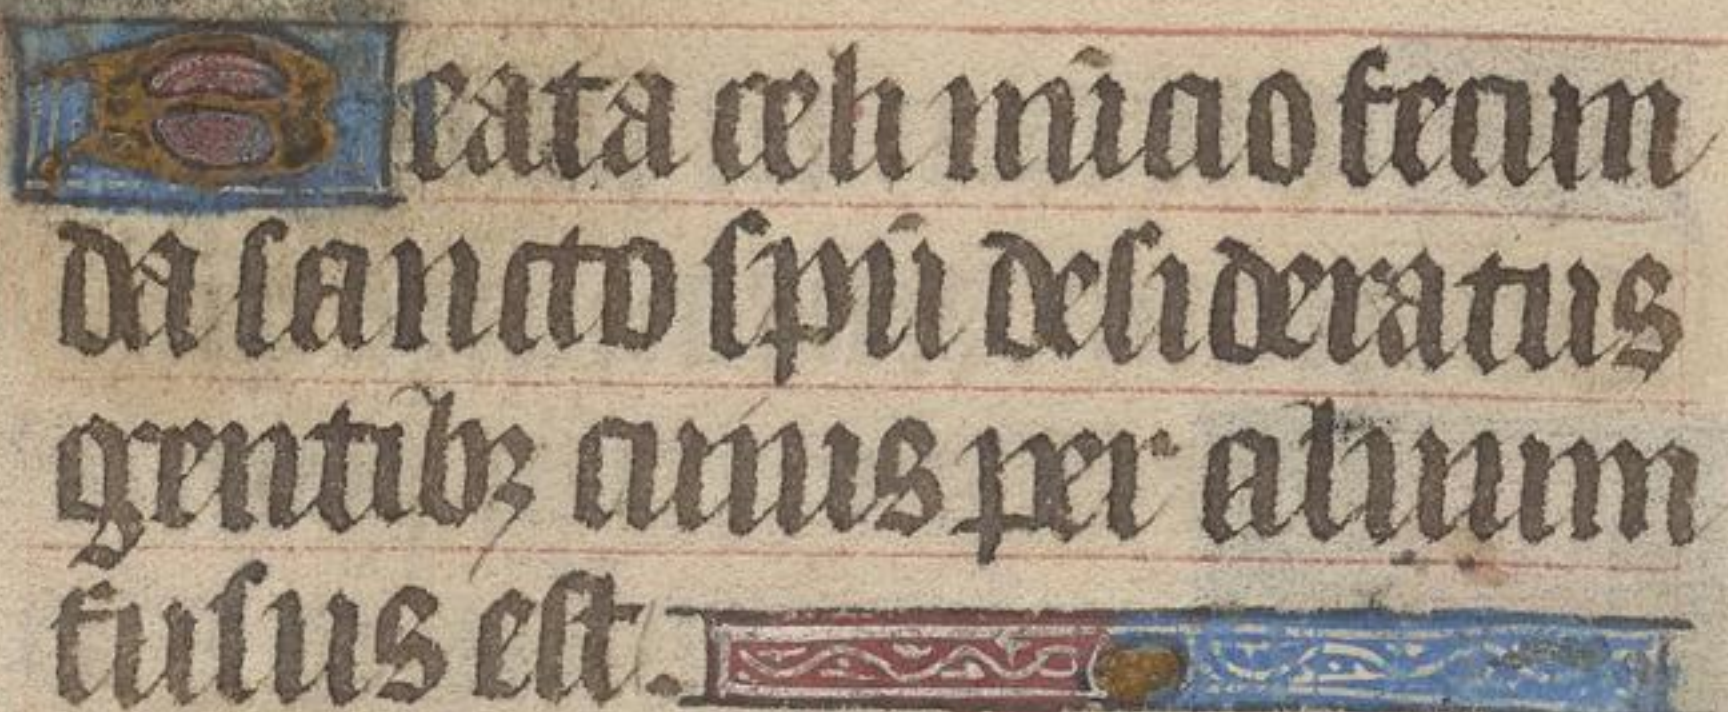 Beata celi nūcio fecun
da sancto spū desideratus
gentibꝫ cuius per aluum
fusus est.